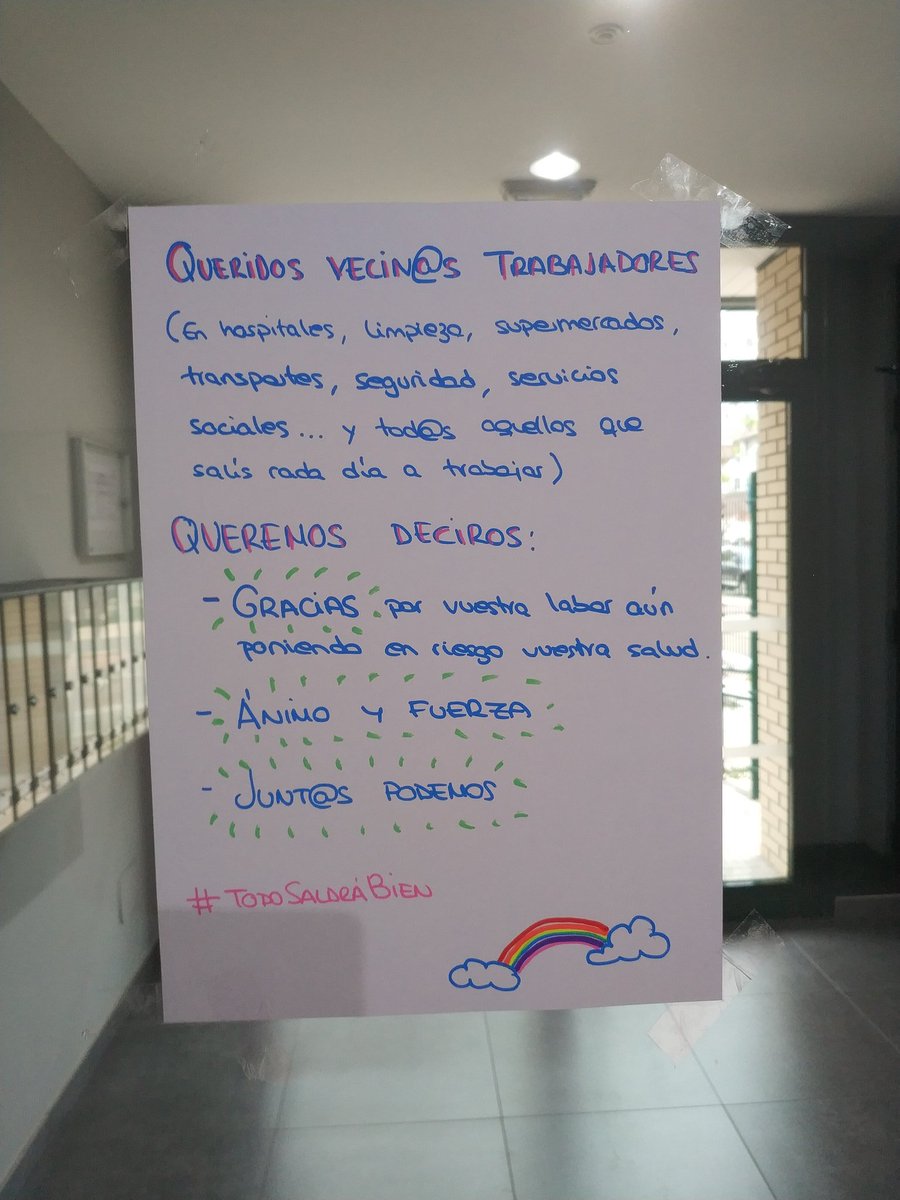 QUERIDOS VECIN@S TRABAJADORES
(En hospitales, limpieza, supermercados,
transportes, seguridad, servicios
sociales... y tod@s aquellos que
salís cada día a trabajar)
QUEREMOS DECIROS:
- GRACIAS por vuestra labor aún
poniendo en riesgo vuestra salud.
- ÁNIMO Y FUERZA
- JUNT@S PODEMOS
#TODOSALDRÁBIEN